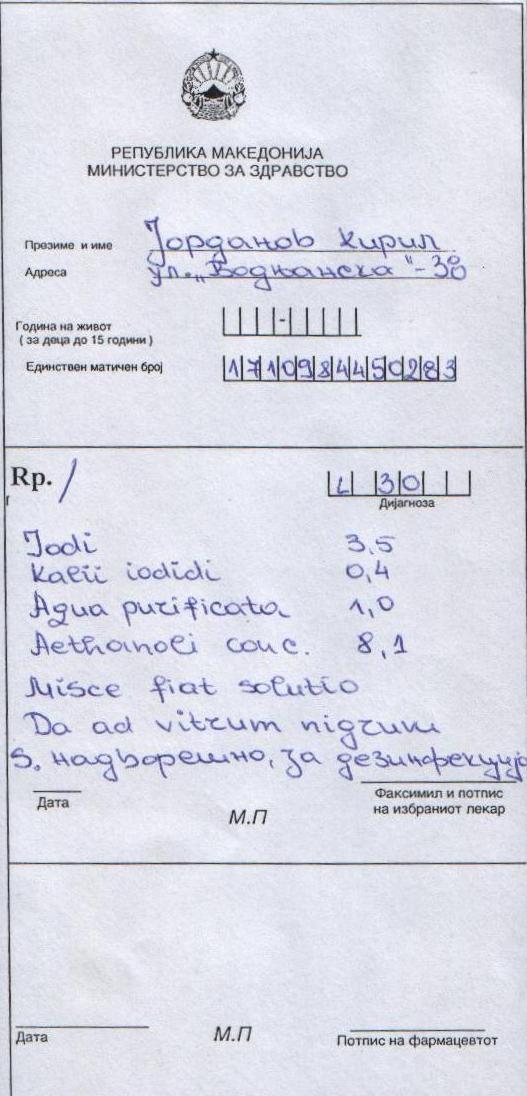 РЕПУБЛИКА МАКЕДОНИЈА
МИНИСТЕРСТВО ЗА ЗДРАВСТВО
Презиме и име Јорданов Кирил
Адреса ул. „Водњанска"-38
Година на живот
( за деца до 15 години )
Единствен матичен број 1710984450283
Rp. /
L 30
Дијагноза
Jodi 3,5
Kalii iodidi 0,4
Agua purificata 1,0
Aethanoli conc. 8,1
Misce fiat solutio
Da ad vitrum nigrum
S. надворешно, за дезинфекција
Дата
М.П
Факсимил и потпис
на избраниот лекар
Дата
М.П
Потпис на фармацевтот